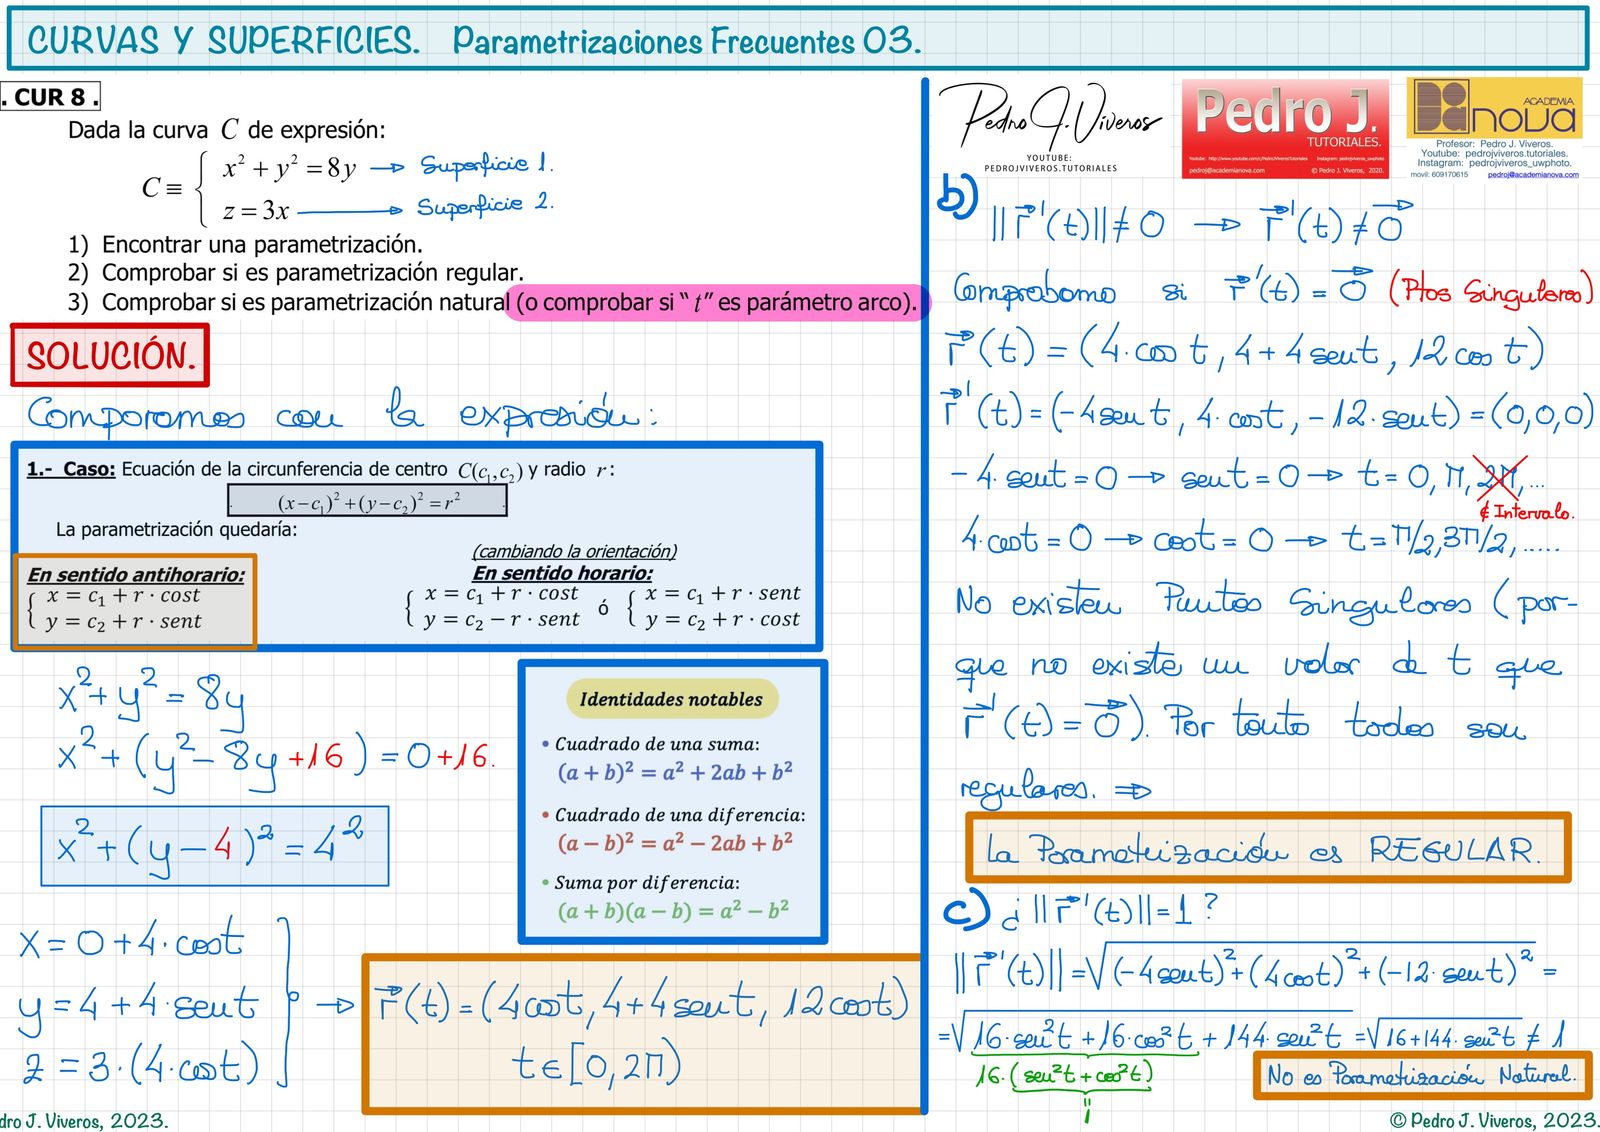 CURVAS Y SUPERFICIES. Parametrizaciones Frecuentes 03.
. CUR 8 .
Dada la curva C de expresión:
C ≡ { x² + y² = 8y → Superficie 1.
z = 3x → Superficie 2.
1) Encontrar una parametrización.
2) Comprobar si es parametrización regular.
3) Comprobar si es parametrización natural (o comprobar si “ t ” es parámetro arco).
SOLUCIÓN.
Comparamos con la expresión:
1.- Caso: Ecuación de la circunferencia de centro C(c₁,c₂) y radio r :
(x−c₁)² + (y−c₂)² = r²
La parametrización quedaría:
(cambiando la orientación)
En sentido antihorario:
{ x = c₁ + r · cost
y = c₂ + r · sent
En sentido horario:
{ x = c₁ + r · cost ó { x = c₁ + r · sent
y = c₂ − r · sent y = c₂ + r · cost
x² + y² = 8y
x² + (y² − 8y +16) = 0 +16.
x² + (y − 4)² = 4²
x = 0 + 4·cost
y = 4 + 4·sent
z = 3·(4·cost)
→ r(t) = (4cost, 4+4sent, 12cost)
t ∈ [0, 2π)
Identidades notables
• Cuadrado de una suma:
(a + b)² = a² + 2ab + b²
• Cuadrado de una diferencia:
(a − b)² = a² − 2ab + b²
• Suma por diferencia:
(a + b)(a − b) = a² − b²
Pedro J. Viveros
YOUTUBE:
PEDROJVIVEROS.TUTORIALES
Pedro J.
TUTORIALES.
Youtube: http://www.youtube.com/c/PedroJViverosTutoriales Instagram: pedrojviveros_uwphoto
pedroj@academianova.com © Pedro J. Viveros, 2020.
ACADEMIA
nova
Profesor: Pedro J. Viveros.
Youtube: pedrojviveros.tutoriales.
Instagram: pedrojviveros_uwphoto.
movil: 609170615 pedroj@academianova.com
b) ||r'(t)|| ≠ 0 → r'(t) ≠ 0
Comprobamo si r'(t) = 0 (Ptos Singulares)
r(t) = (4·cos t, 4+4sent, 12cos t)
r'(t) = (-4sent, 4·cost, -12·sent) = (0,0,0)
-4·sent = 0 → sent = 0 → t = 0, π, 2π, ...
∉ Intervalo.
4·cost = 0 → cost = 0 → t = π/2, 3π/2, .....
No existen Puntos Singulares (por-
que no existe un valor de t que
r'(t) = 0). Por tanto todos son
regulares. ⇒
La Parametrización es REGULAR.
c) ¿ ||r'(t)|| = 1 ?
||r'(t)|| = √(-4sent)² + (4cost)² + (-12·sent)² =
= √16·sen²t + 16·cos²t + 144·sen²t = √16+144·sen²t ≠ 1
16·(sen²t + cos²t)
1
No es Parametrización Natural.
dro J. Viveros, 2023.
© Pedro J. Viveros, 2023.